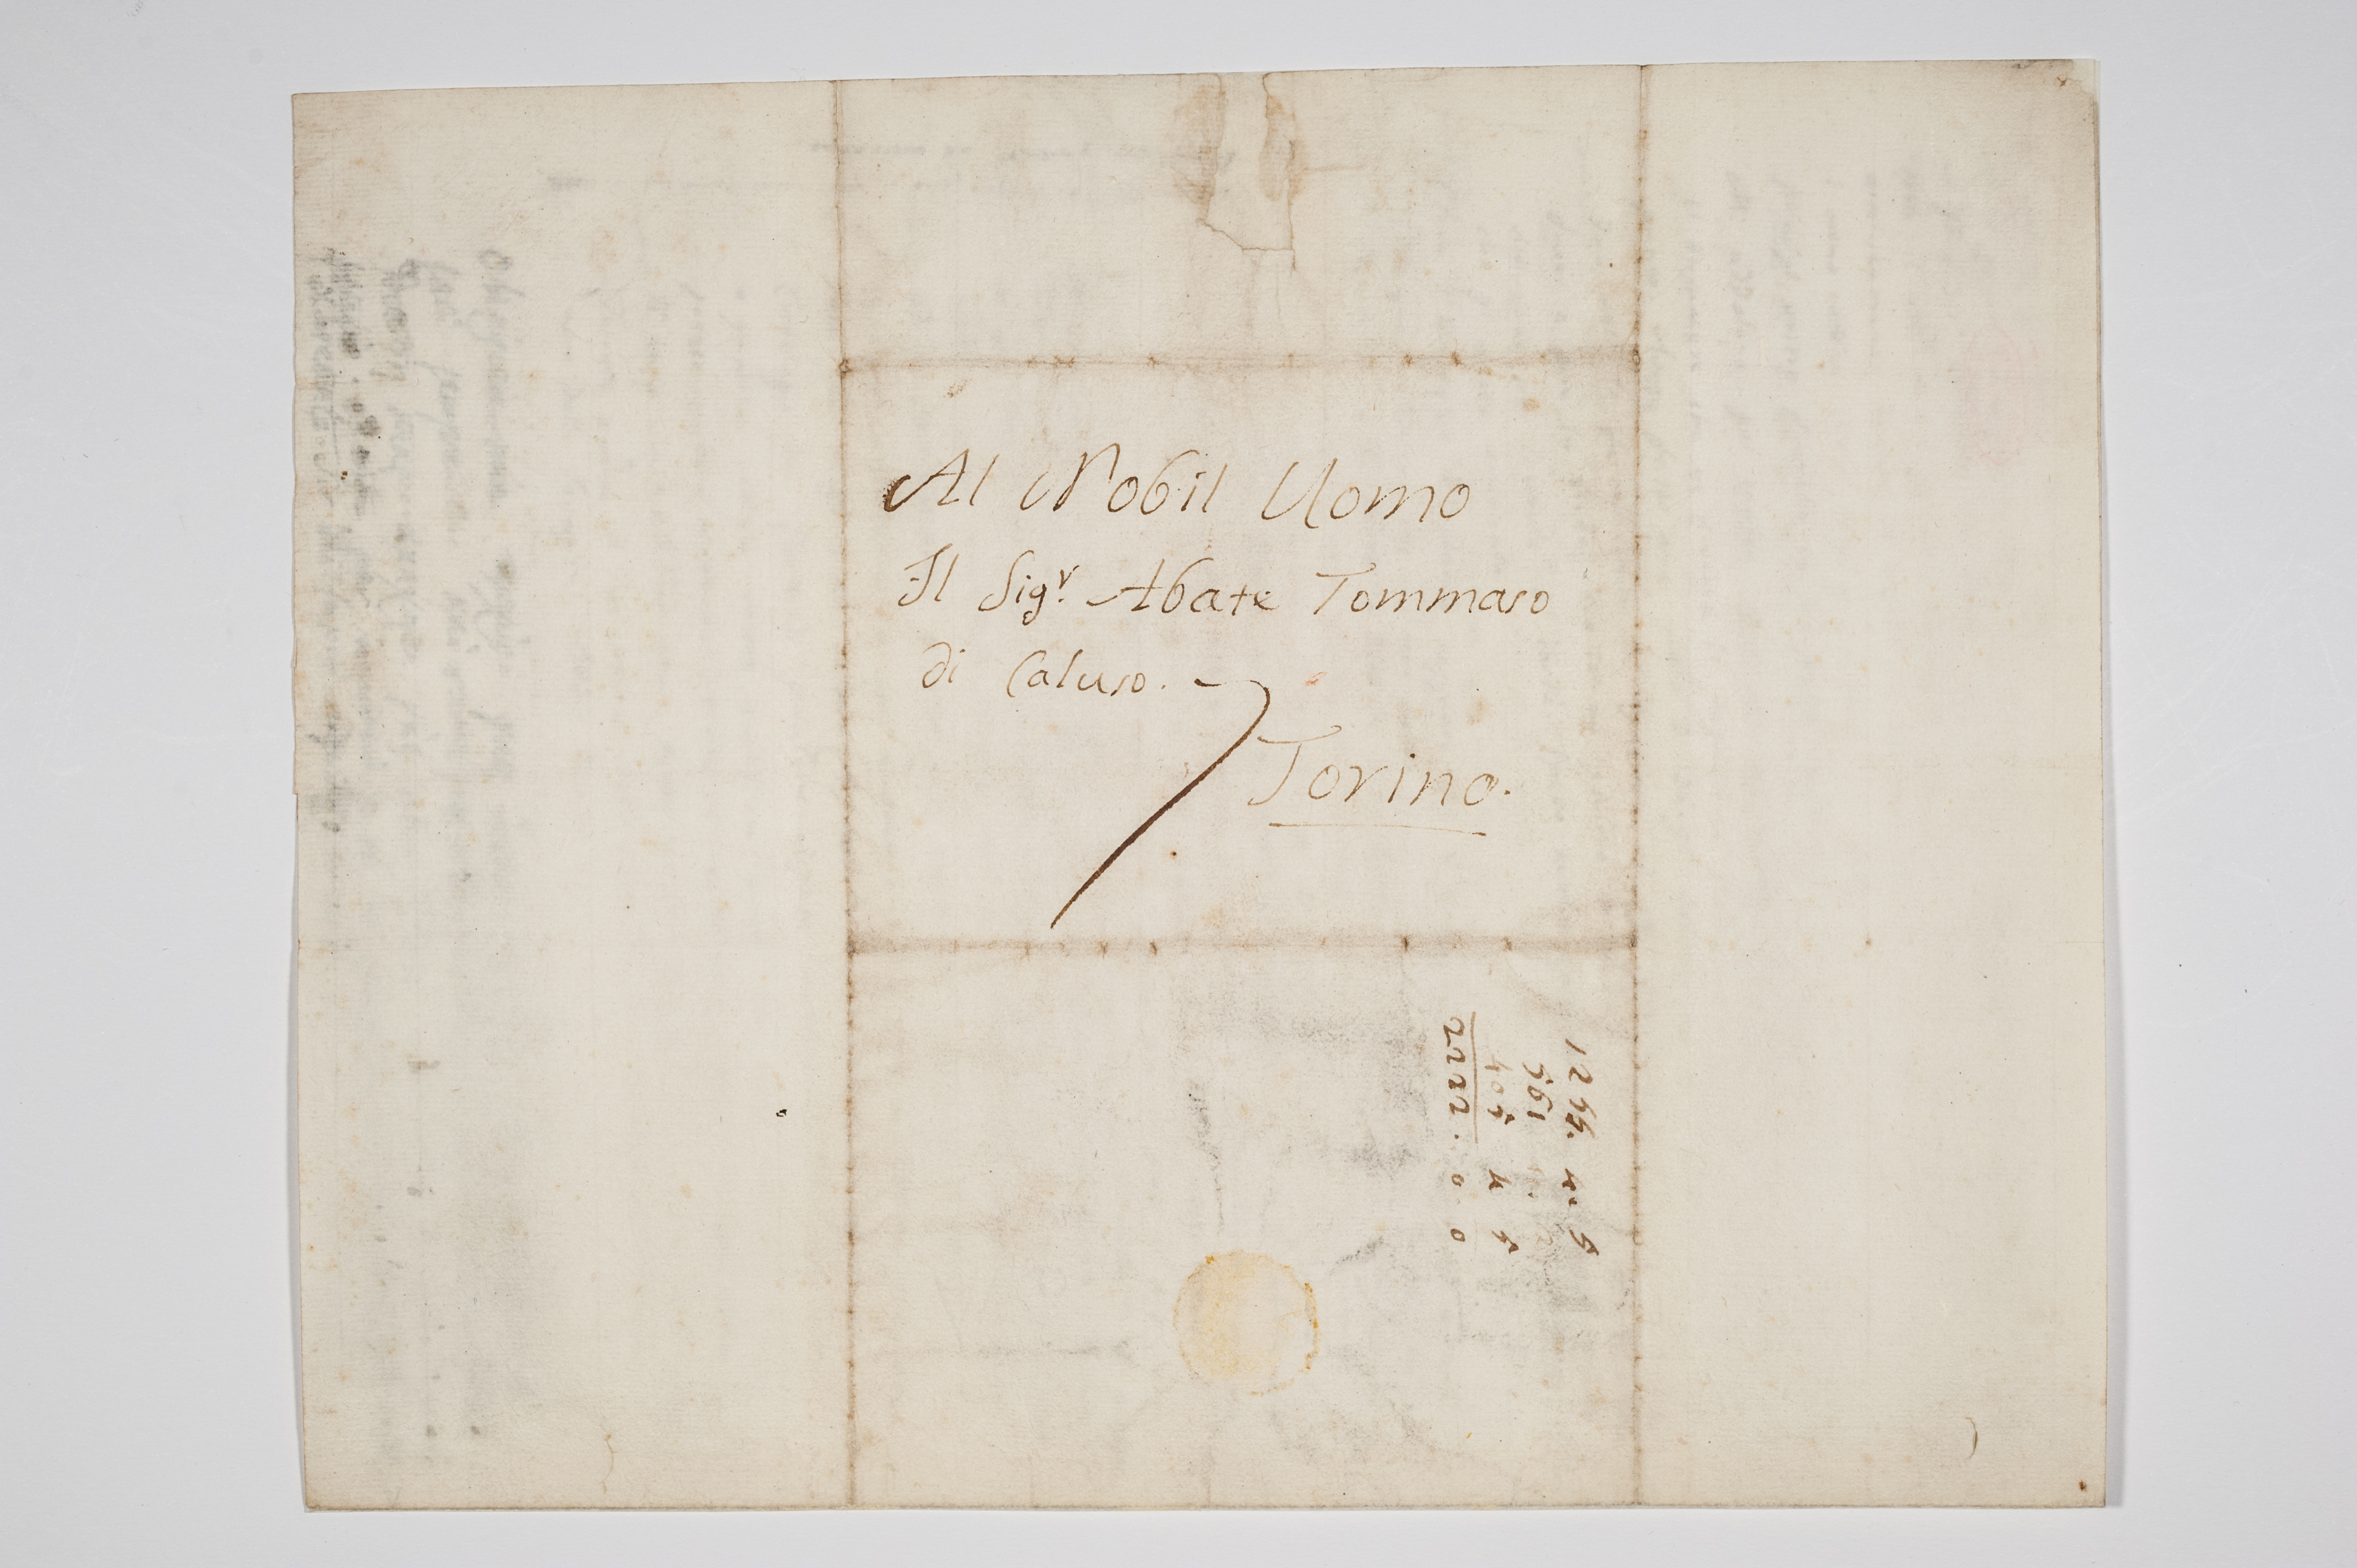 Al Nobil Uomo
Il Sig.r Abate Tommaso
di Caluso.
Torino.
1255. 4. 5
561
405 4 5
2222. 0 0